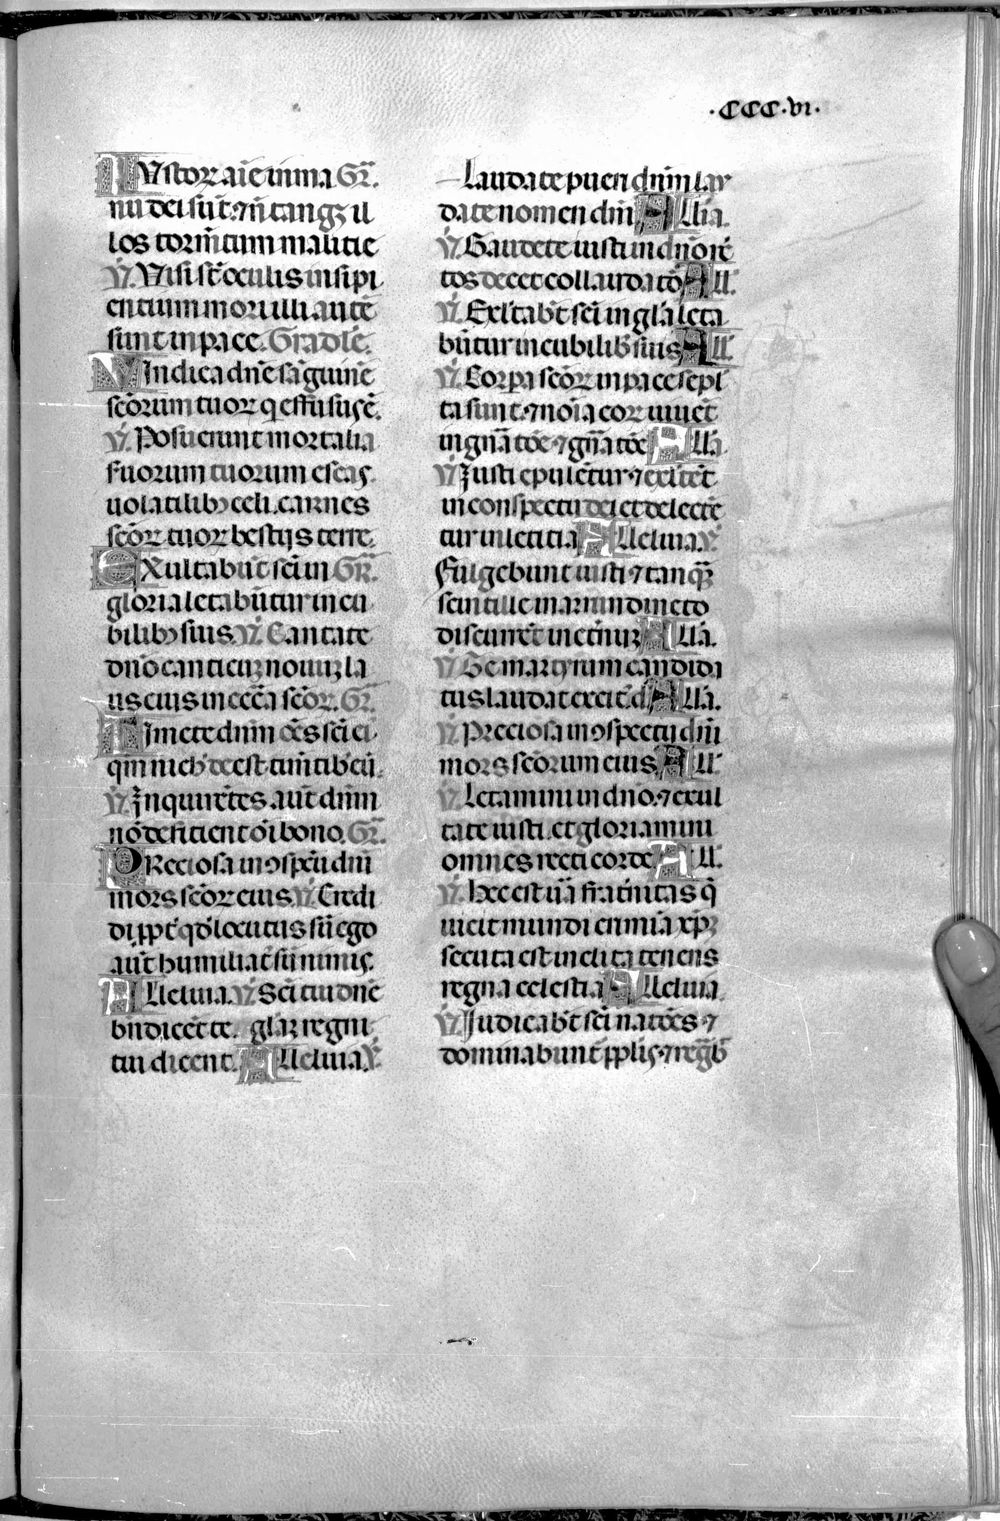 .CCC.vi.
IVstoꝝ aīe in ma Gr̄.
nu dei sūt.⁊ n̄ tanget il
los tormētum malitie
℣. Visi sūt oculis insipi
entium mori illi autē
sunt in pace. Gradle.
VIndica dn̄e sāguinē
scōrum tuoꝝ q̄ effusus ē.
℣. Posuerunt mortalia
suorum tuorum escas
uolatilibꝫ celi. carnes
scōꝝ tuoꝝ bestijs terre.
EXultabūt sc̄i in Gr̄.
gloria letabūtur in cu
bilibꝫ suis. ℣. Cantate
dn̄o canticuꝫ nouuꝫ la
us eius in ecc̄a scōꝝ. Gr̄.
TImete dn̄m oēs sc̄i ei
qm̄ nichꝭ deest timētibꝫ eū.
℣. Inquirētes aūt dn̄m
nō deficient oī bono. Gr̄.
PReciosa in ꝯspcū dn̄i
mors scōꝝ eius. ℣. Credi
di ꝓpt̄ qd̓ locutus sū ego
aūt humiliat̄ sū nimis.
ALleluia. ℣. Sc̄i tui dn̄e
bn̄dicēt te. gl̄aꝫ regni
tui dicent. Alleluia. ℣.
Laudate pueri dn̄m lau
date nomen dn̄i. Allīa.
℣. Gaudete iusti in dn̄o rc̄
tos decet collaudatō. All̄.
℣. Exl̄tabt̄ sc̄i in gl̄a leta
būtur in cubilibꝫ suis. All̄.
℣. Corpa scōꝝ in pace sepl̄
ta sunt.⁊ noīa eoꝝ uiuēt
in gn̄atōe ⁊ gn̄atōe. Allā.
℣. Iusti epulētur.⁊ exl̄tēt
in conspectu dei et delectē
tur in letitia. Alleluia. ℣.
Fulgebunt iusti ⁊ tanqꝫ
scintille in arundineto
discurrēt in et̄nuꝫ. Allā.
℣. Te martyrum candida
tus laudat exercit̄. d. Allā.
℣. Preciosa in ꝯspectu dn̄i
mors scōrum eius. All̄.
℣. Letamini in dn̄o.⁊ exul
tate iusti. et gloriamini
omnes recti corde. All̄.
℣. Hec est uā frat̄nitas q̄
uicit mundi crimīa xp̄ꝫ
secuta est inclita tenens
regna celestia. Alleluia.
℣. Iudicabt̄ sc̄i natōes ⁊
dominabunt̄ ppl̄is.⁊ regb̄